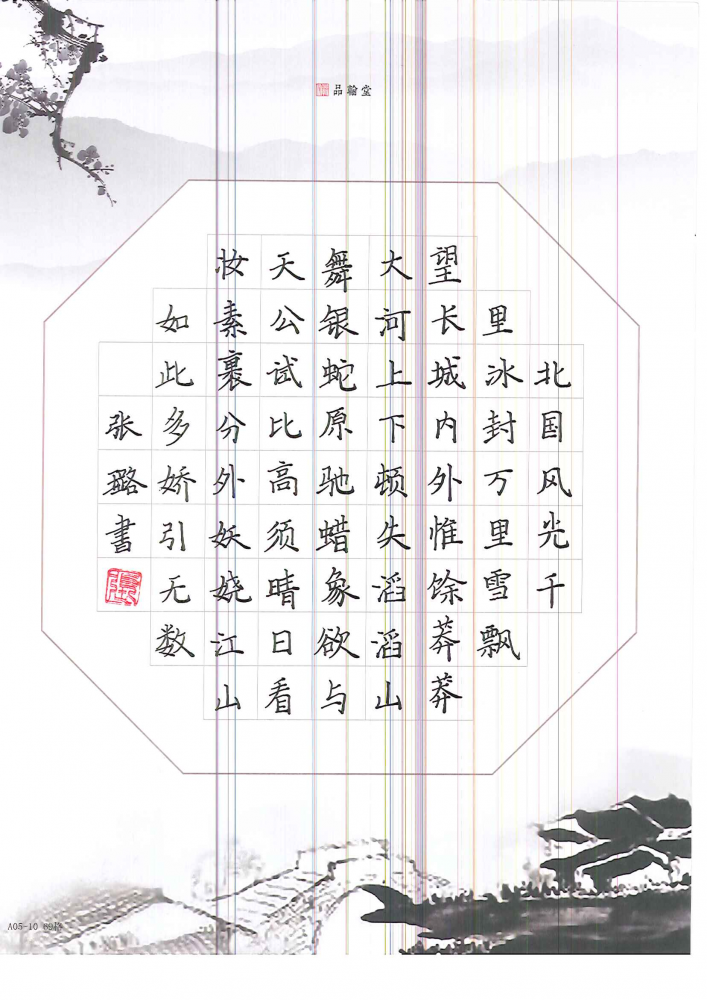 品翰堂
北国风光千
里冰封万里雪飘
望长城内外惟馀莽莽
大河上下顿失滔滔山
舞银蛇原驰蜡象欲与
天公试比高须晴日看
妆素裹分外妖娆江山
如此多娇引无数
张璐書
A05-10 69格